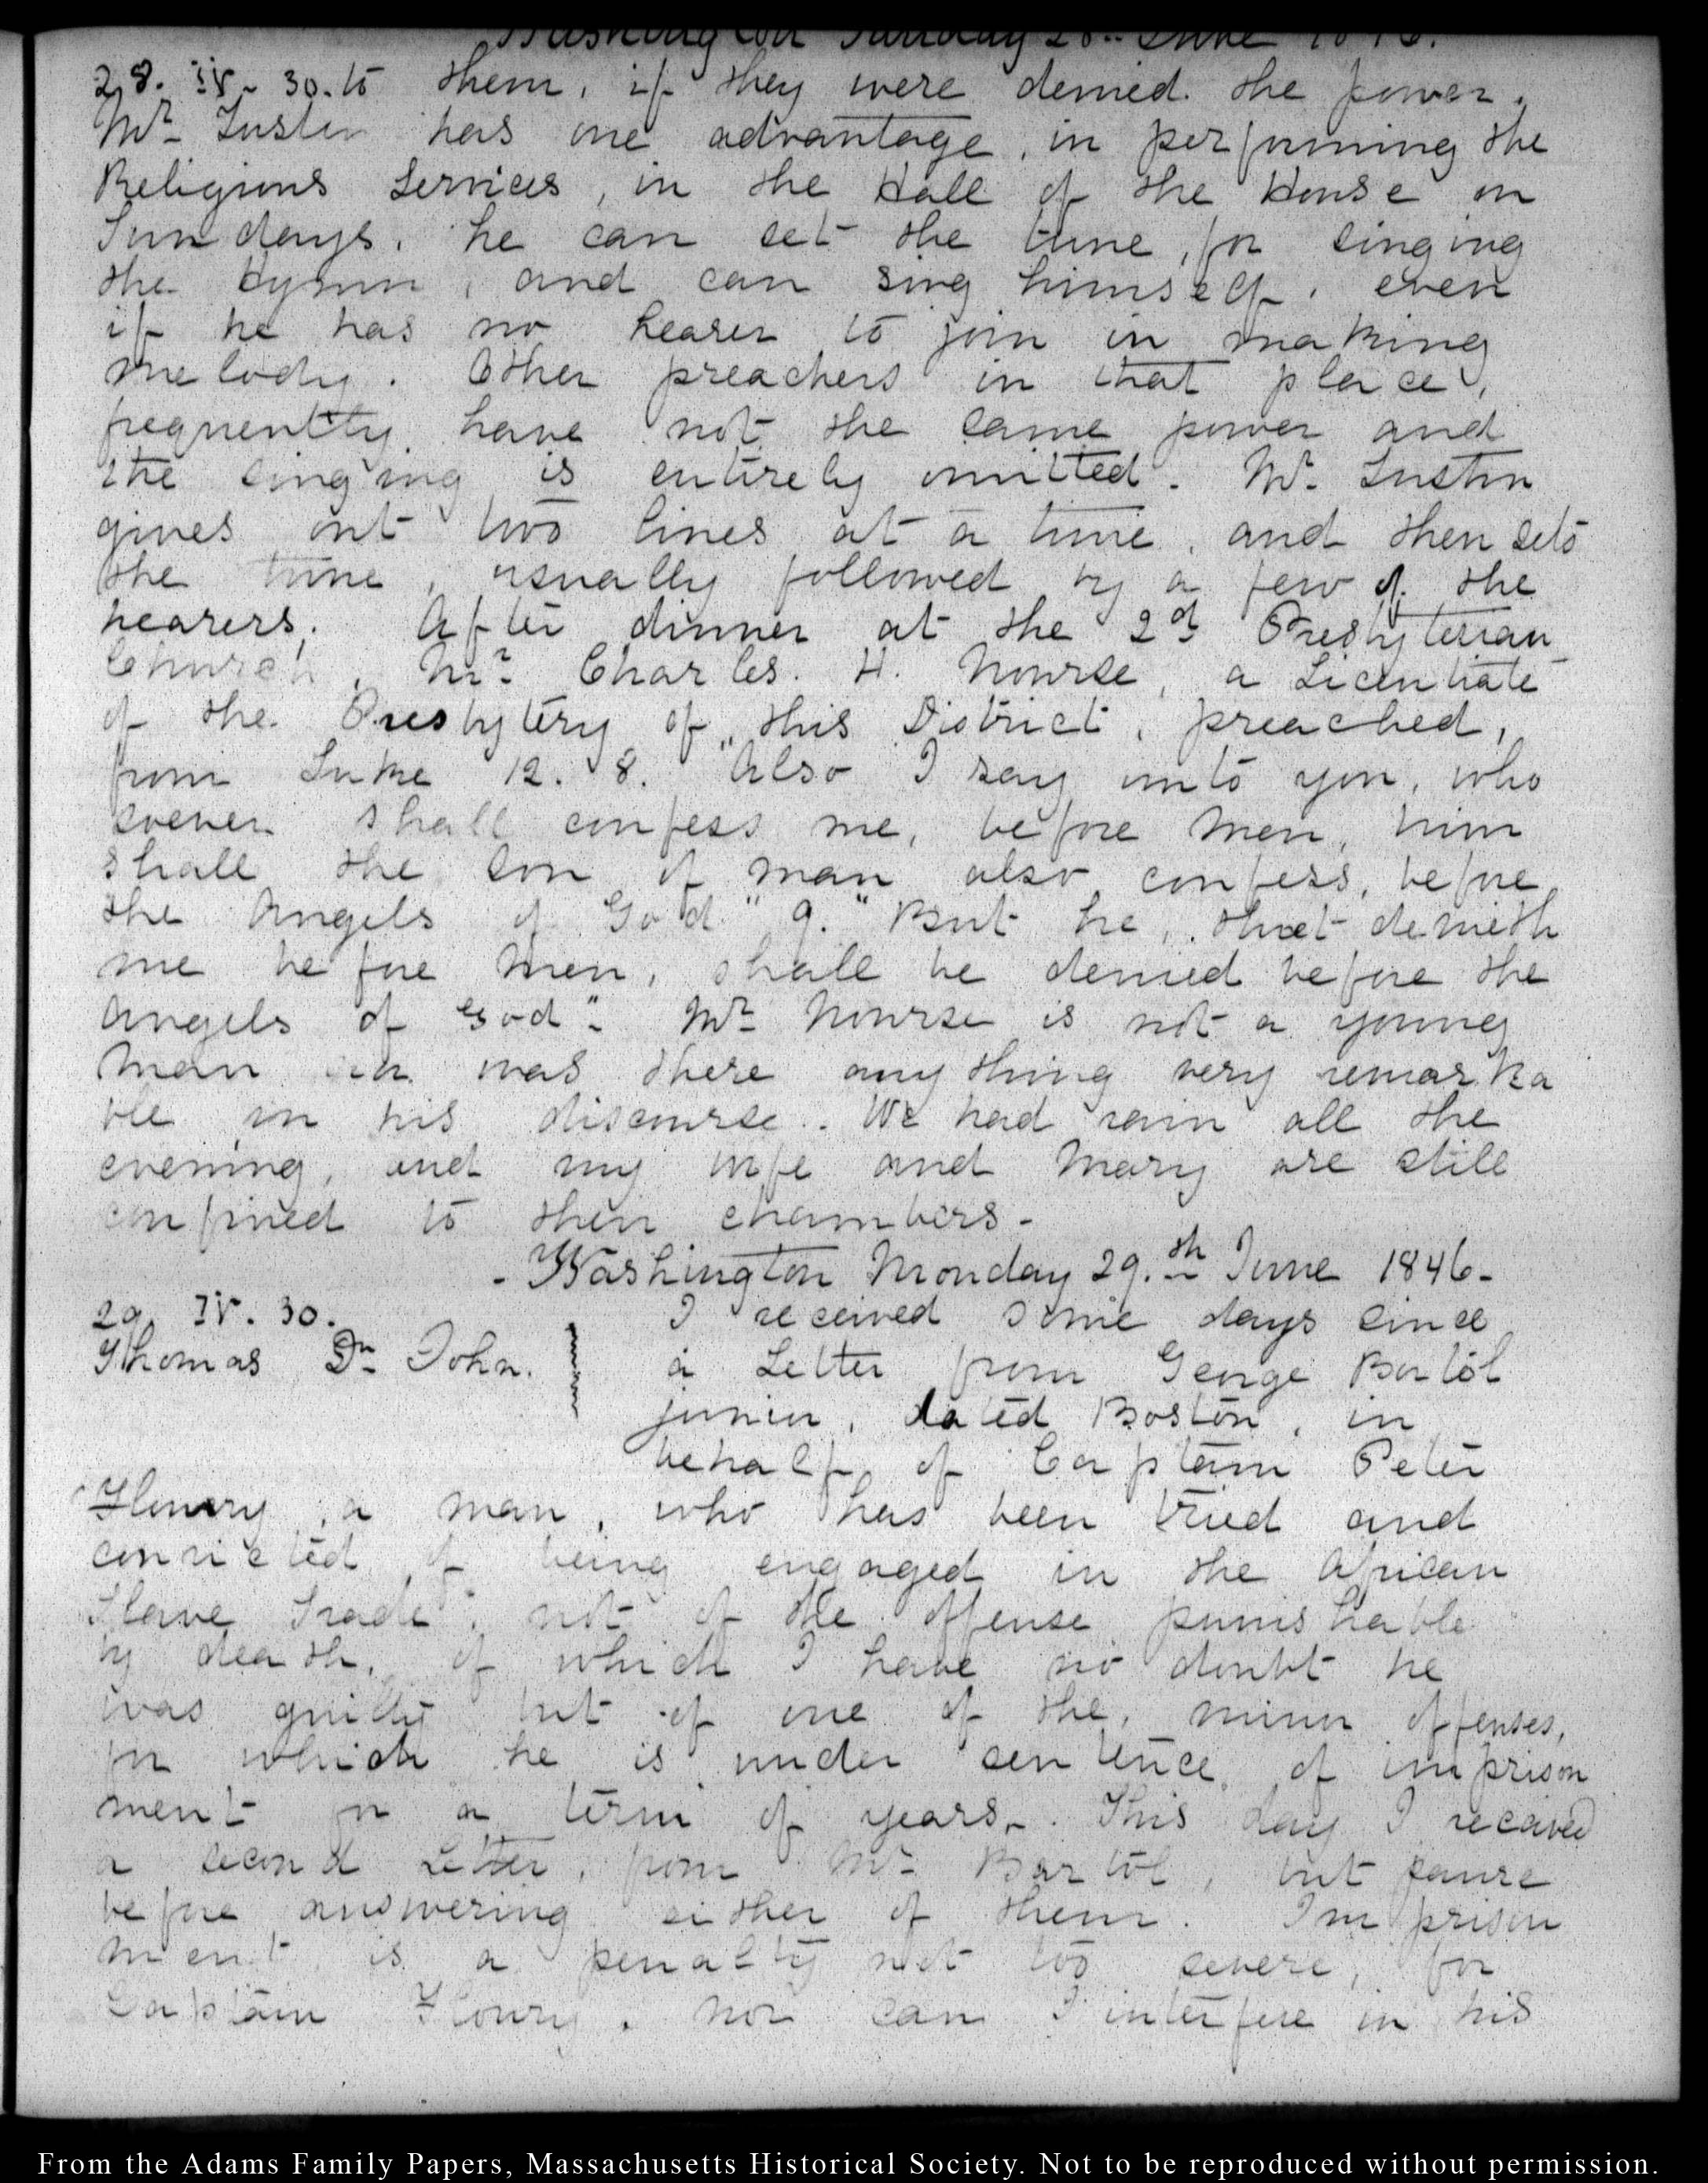 Washington Sunday 28th June 1846.
28. IV. 30. to them, if they were denied the power.
Mr. Tustin has one advantage, in performing the
Religious Services, in the Hall of the House on
Sundays. he can set the tune, for singing
the Hymn, and can sing himself, even
if he has no hearer to join in making
melody. Other preachers in that place,
frequently have not the same power and
the singing is entirely omitted. Mr. Tustin
gives out two lines at a time, and then sets
the tune, usually followed by a few of the
hearers. After dinner at the 2d Presbyterian
Church, Mr. Charles. H. Nourse, a Licentiate
of the Presbytery of this District, preached,
from Luke 12. 8. "Also I say unto you, who
soever shall confess me, before men, him
shall the son of man also confess, before
the Angels of God" 9. "But he, that denieth
me before men, shall be denied before the
Angels of God". Mr. Nourse is not a young
man nor was there any thing very remarka
ble in his discourse. We had rain all the
evening, and my wife and Mary are still
confined to their chambers.
- Washington Monday 29.th June 1846-
29. IV. 30. I received some days since
Thomas Dr. John. a Letter from George Bartol
junior, dated Boston, in
behalf of Captain Peter
Flowry, a man, who has been tried and
convicted of being engaged in the African
Slave Trade; not of the offense punishable
by death, of which I have no doubt he
was guilty but of one of the, minor offenses,
for which he is under sentence of imprison
ment for a term of years. This day I received
a second Letter, from Mr. Bartol, but pause
before answering either of them. Imprison
ment is a penalty not too severe, for
Captain Flowry. nor can I interfere in his
From the Adams Family Papers, Massachusetts Historical Society. Not to be reproduced without permission.